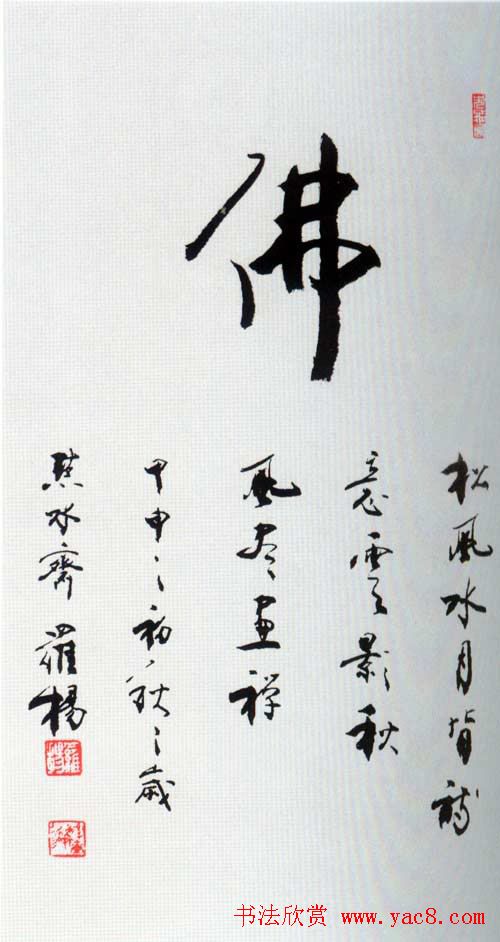 佛
松風水月皆詩
意雲影秋
風尽画禅
甲申之初秋之歲
水齋 羅楊
书法欣赏 www.yac8.com